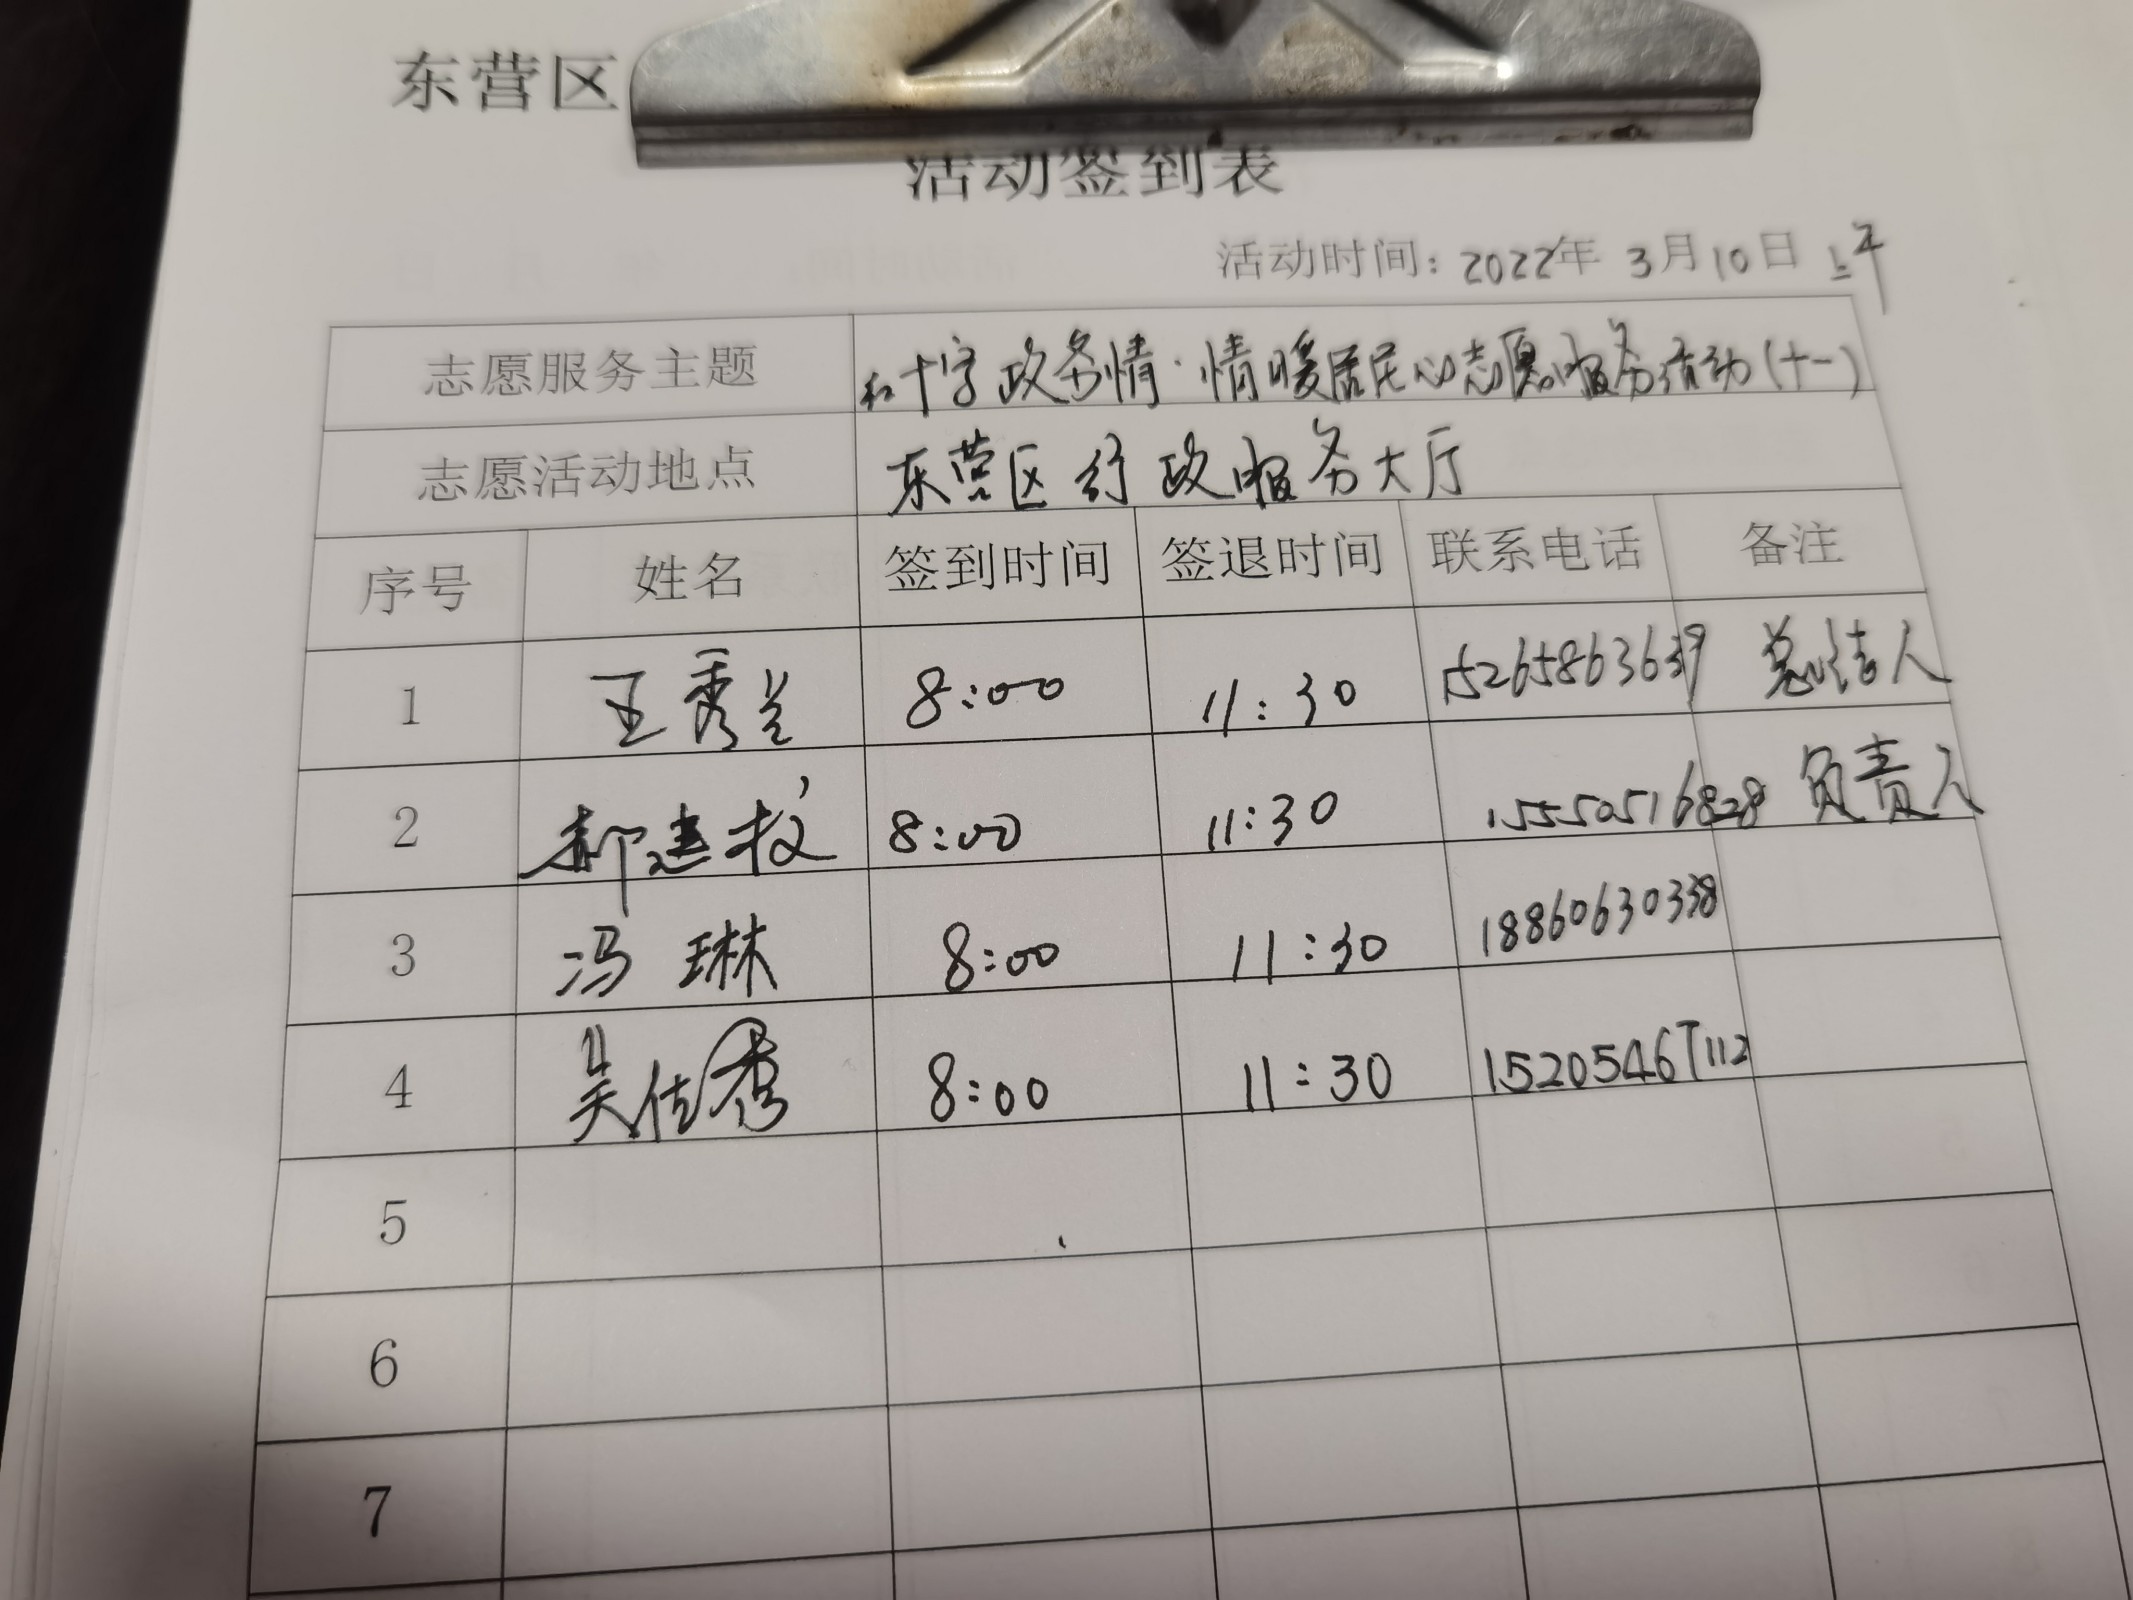 东营区
活动签到表
活动时间：2022年 3月10日 上午
志愿服务主题 红十字政务情·情暖居民心志愿服务活动(十一)
志愿活动地点 东营区行政服务大厅
序号 姓名 签到时间 签退时间 联系电话 备注
1 王秀兰 8:00 11:30 15265863639 总结人
2 郝建 8:00 11:30 15550516828 负责人
3 冯琳 8:00 11:30 18860630338
4 吴佳秀 8:00 11:30 15205467112
5
6
7